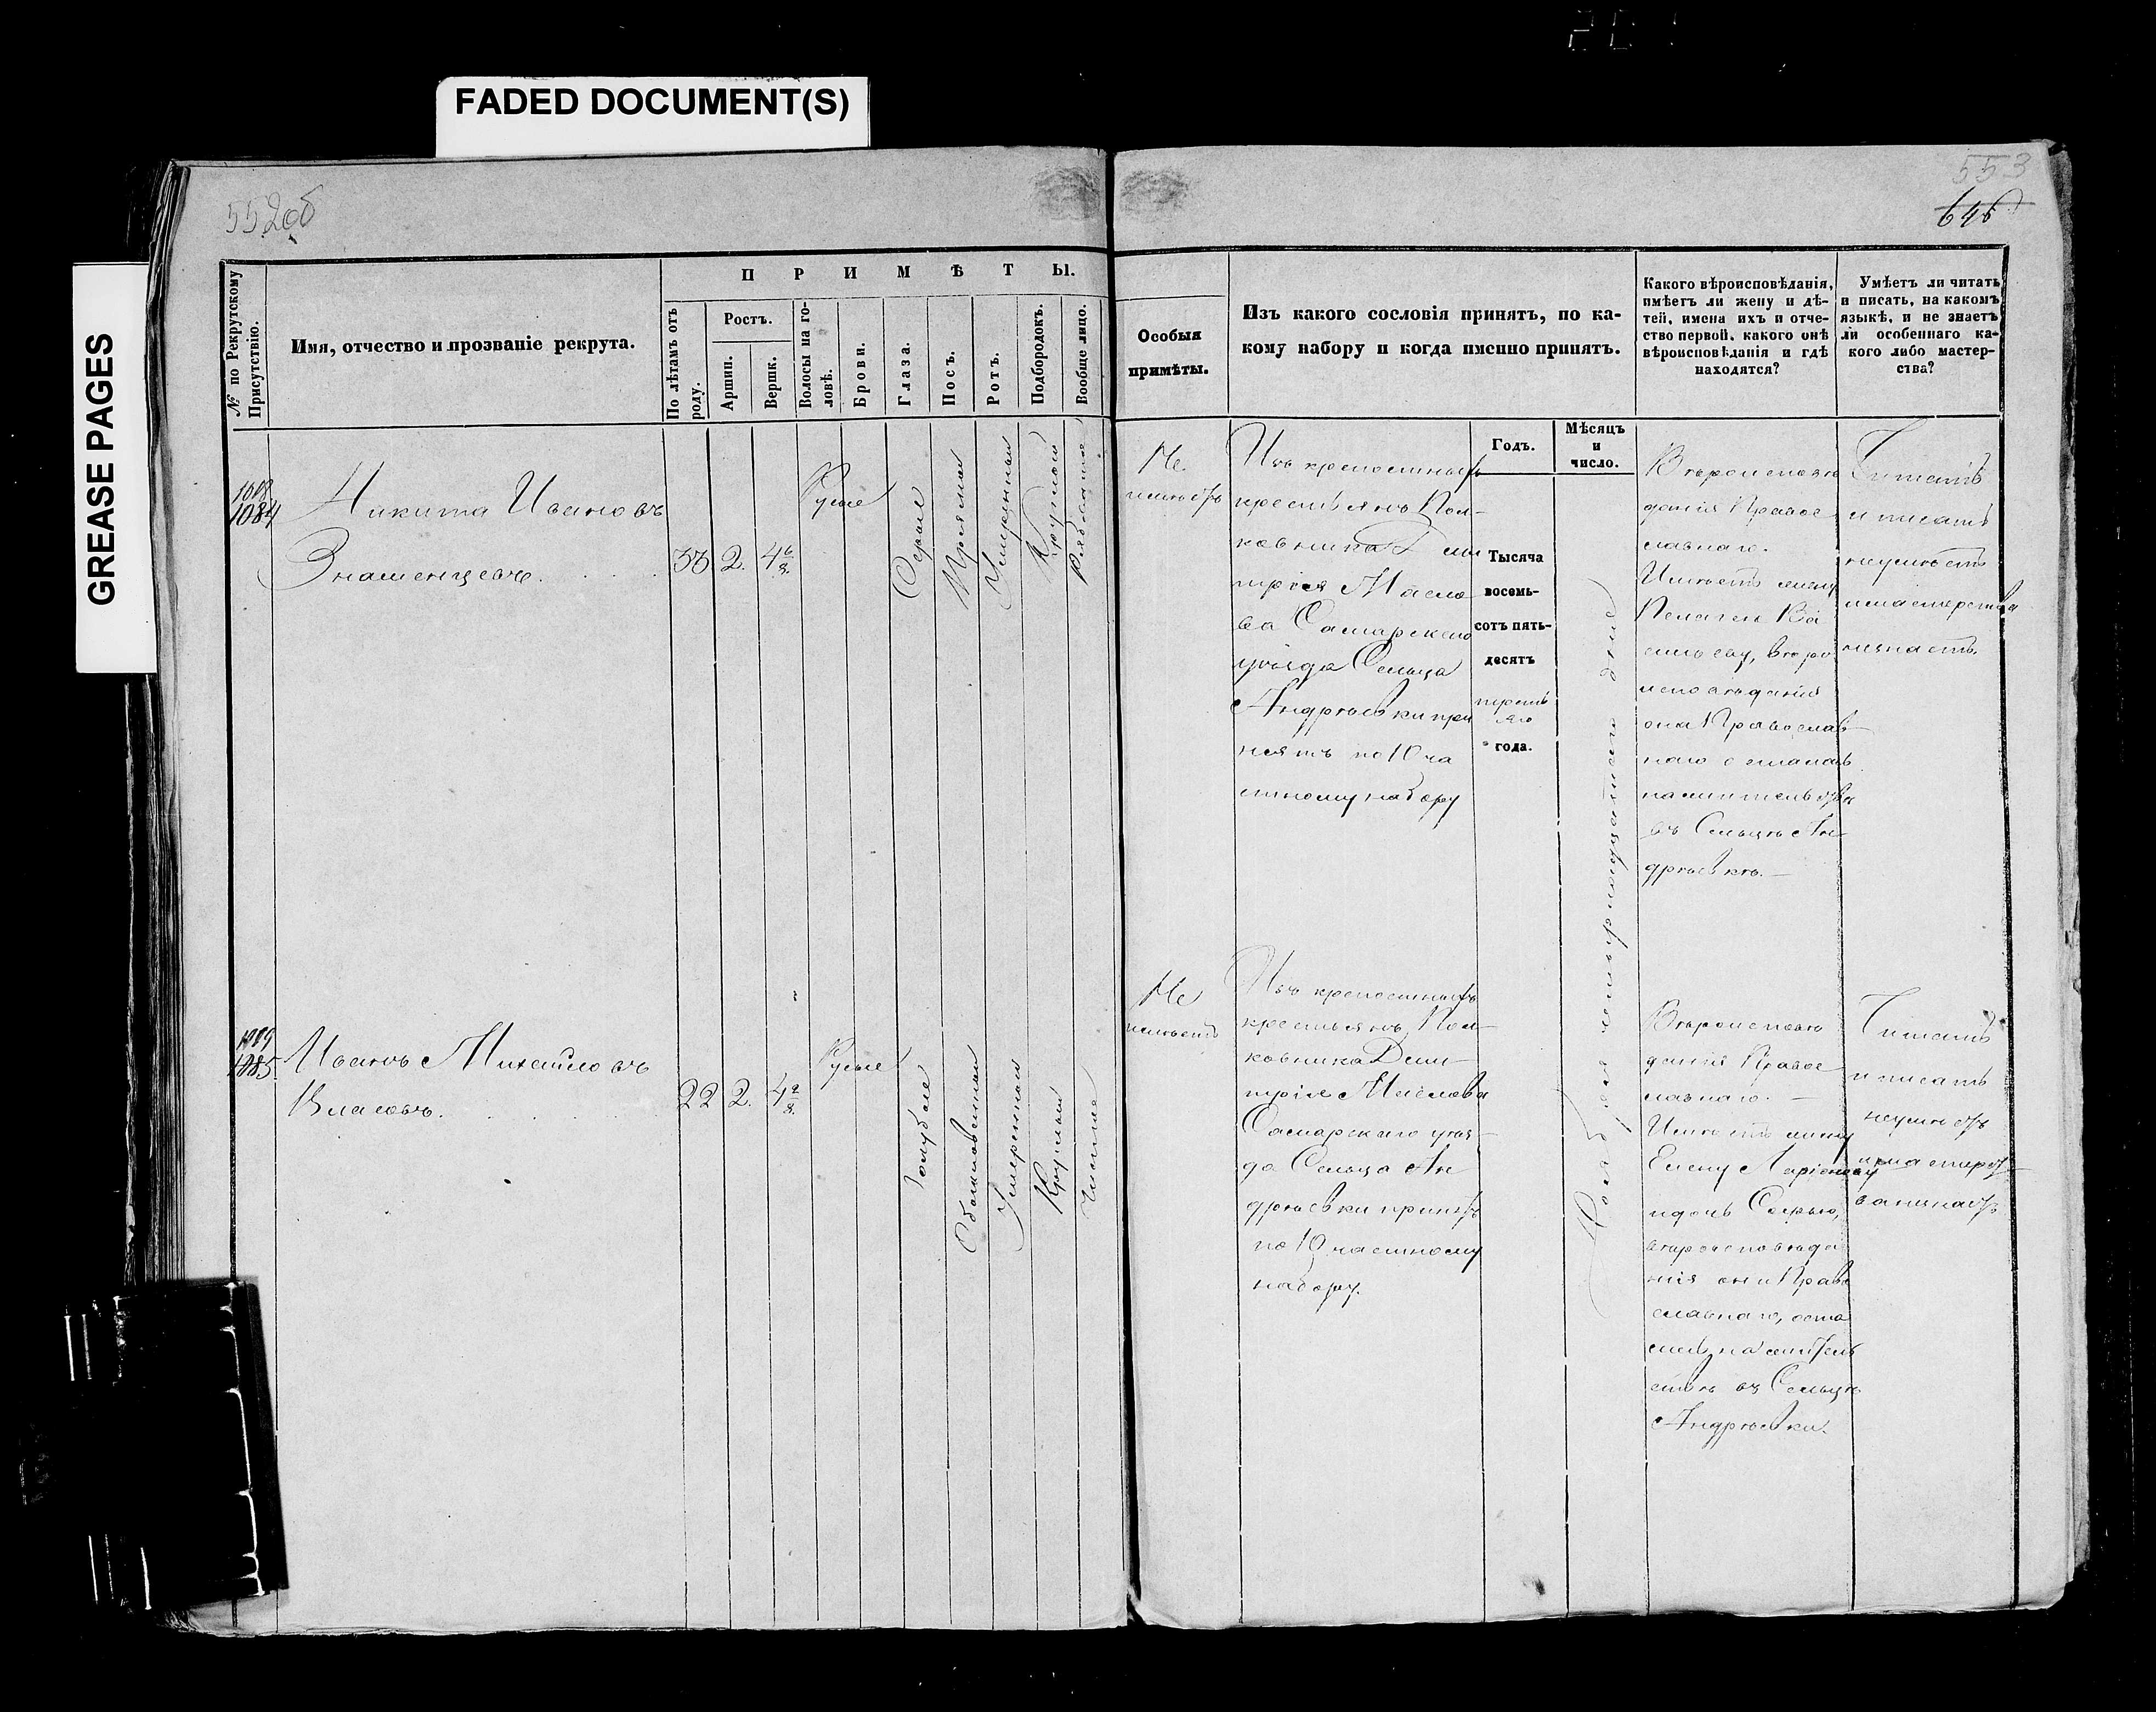 FADED DOCUMENT(S)
GREASE PAGES
552об
553
646
№ по Рекрутскому Присутствію.
Имя, отчество и прозваніе рекрута.
ПРИМѢТЫ.
По лѣтамъ отъ роду.
Ростъ.
Аршин.
Вершк.
Волосы на головѣ.
Брови.
Глаза.
Носъ.
Ротъ.
Подбородокъ.
Вообще лицо.
Особыя
примѣты.
Изъ какого сословія принятъ, по ка-
кому набору и когда именно принятъ.
Какого вѣроисповѣданія,
имѣетъ ли жену и дѣ-
тей, имена ихъ и отче-
ство первой, какого онѣ
вѣроисповѣданія и гдѣ
находятся?
Умѣетъ ли читать
и писать, на какомъ
языкѣ, и не знаетъ
ли особеннаго ка-
кого либо мастер-
ства?
Годъ.
Мѣсяцъ
и
число.
1084
Никита Ивановъ
Знаменщевъ.
33
2.
4 6/8.
Русые
Сѣрые
Прямой
Умѣренный
Круглый
Рябоватое
Не
имѣетъ
Изъ крепостныхъ
крестьянъ Пол-
ковника Дми
трія Масло
ва Самарскаго
уѣзда Сельца
Андрѣевки при
нятъ по 10 ча
стному набору
Тысяча
восемь-
сотъ пять-
десятъ
перваго
года.
Ноября четырнадцатаго дня
Вѣроисповѣ
данія Правос
лавнаго.
Имѣетъ жену
Пелагею Ва
сильеву, вѣро
исповѣданія
она Православ-
наго осталась
на жительствѣ
въ Сельцѣ Ан-
дрѣевкѣ.
Читать
и писать
неумѣетъ
и мастерства
незнаетъ
1089
1085.
Иванъ Михайловъ
Власовъ.
22
2.
4 2/8.
Русые
Голубые
Обыкновенный
Умеренный
Круглый
Чистое
Не
имѣетъ
Изъ крепостныхъ
крестьянъ Пол-
ковника Дми-
трія Маслова
Самарскаго уѣз-
да Сельца Ан
дрѣевки принятъ
по 10 частному
набору.
Вѣроисповѣ
данія Правос
лавнаго.
Имѣетъ жену
Елену Ларіонову
и дочь Софью,
вѣроисповѣда
нія они Право
славнаго, оста
лись на житель
ствѣ въ Сельцѣ
Андрѣевки.
Читать
и писать
неумѣетъ
и мастерст-
ва незнаетъ